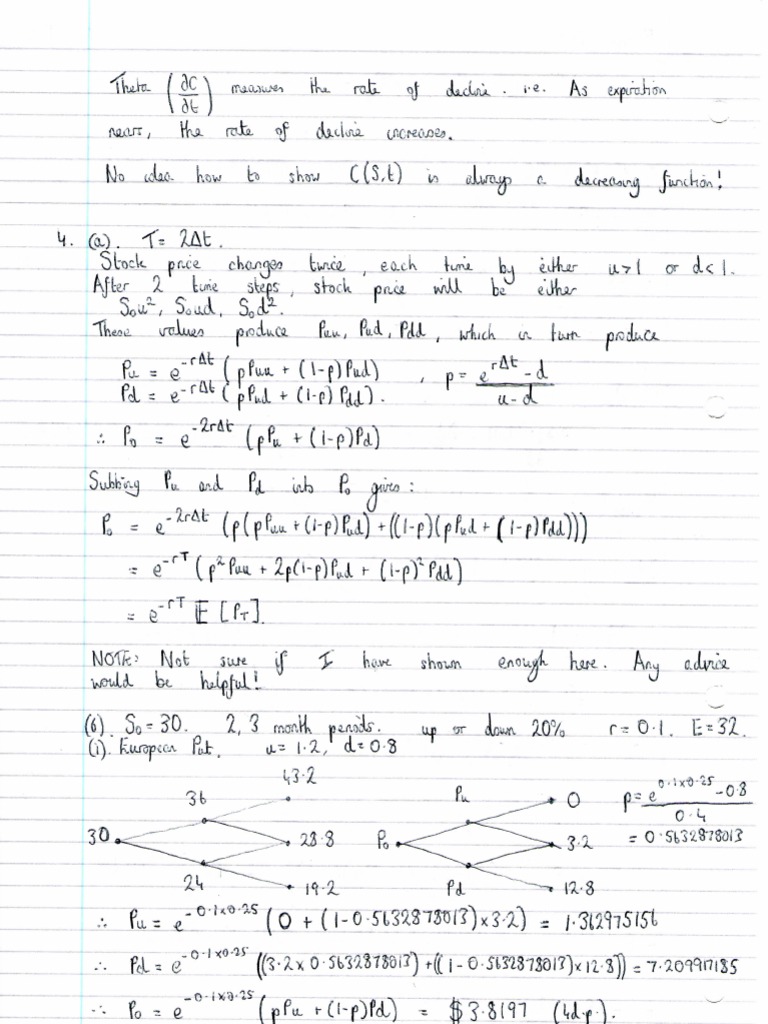 Theta (∂C/∂t) measures the rate of decline. i.e. As expiration
nears, the rate of decline increases.
No idea how to show C(S,t) is always a decreasing function!
4. (a). T = 2Δt.
Stock price changes twice, each time by either u>1 or d<1.
After 2 time steps, stock price will be either
S₀u², S₀ud, S₀d².
These values produce Puu, Pud, Pdd, which in turn produce
Pu = e^(-rΔt) (pPuu + (1-p)Pud) , p = (e^(rΔt) - d)/(u-d)
Pd = e^(-rΔt) (pPud + (1-p)Pdd).
∴ P₀ = e^(-2rΔt) (pPu + (1-p)Pd)
Subbing Pu and Pd into P₀ gives:
P₀ = e^(-2rΔt) (p(pPuu + (1-p)Pud) + ((1-p)(pPud + (1-p)Pdd)))
= e^(-rT) (p²Puu + 2p(1-p)Pud + (1-p)²Pdd)
= e^(-rT) 𝔼[P_T].
NOTE: Not sure if I have shown enough here. Any advice
would be helpful!
(b). S₀ = 30. 2, 3 month periods. up or down 20% r = 0.1. E = 32.
(i). European Put. u = 1.2, d = 0.8
43.2
36 Pu 0 p = (e^(0.1×0.25) - 0.8)/0.4
30 28.8 P₀ 3.2 = 0.5632878013
24 19.2 Pd 12.8
∴ Pu = e^(-0.1×0.25) (0 + (1-0.5632878013)×3.2) = 1.362975156
∴ Pd = e^(-0.1×0.25) ((3.2×0.5632878013) + ((1-0.5632878013)×12.8)) = 7.209917185
∴ P₀ = e^(-0.1×0.25) (pPu + (1-p)Pd) = $3.8197 (4d.p.).